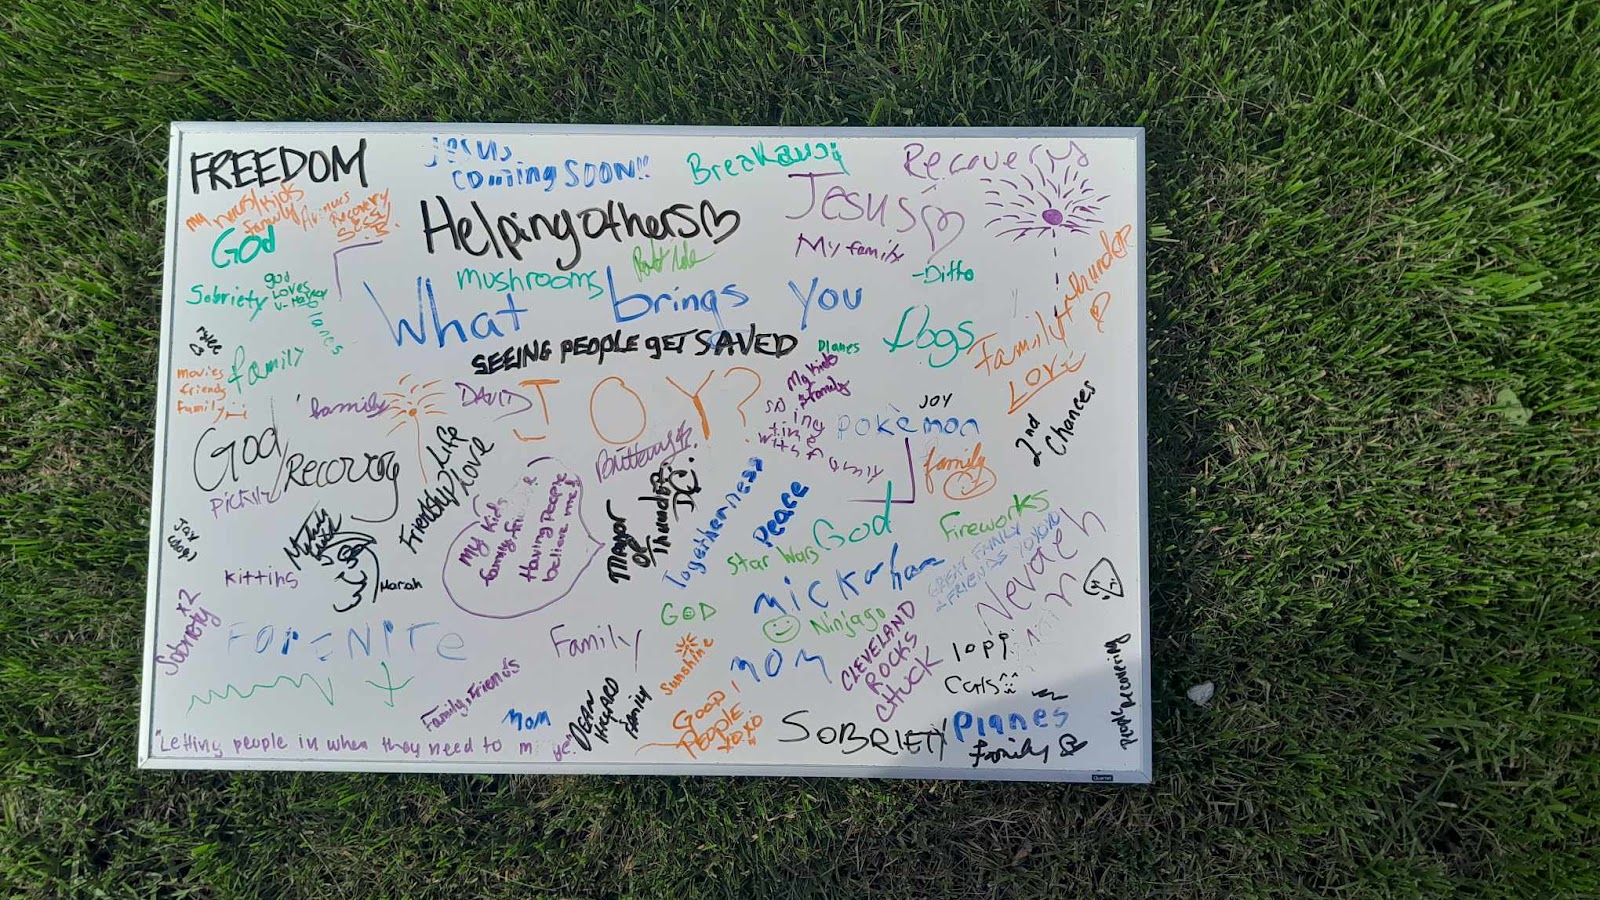 FREEDOM
Jesus
coming SOON!!
Breakaway
Recovery
my
family
Recovery
God
Helping others
Jesus
My family
-Ditto
Sobriety
God
Loves
mushrooms
What brings you
SEEING PEOPLE GET SAVED
Planes
Dogs
Family
LOVE
family
movies
friends
family
family
DAVID
JOY?
My kids
family
JOY
pokemon
2nd
Chances
God
Recovery
Friendship
Life
Love
Brittany
family
My Kids
family, friends
Having People
believe me!
MAYOR
OF
Thunder
D.C.
Togetherness
Peace
Star Wars
God
Fireworks
GREAT FAMILY
FRIENDS YOYOYO
Nevaeh
Jay
(dog)
kittins
Mariah
Sobriety x2
FORTNITE
Family
GOD
Ninjago
Sunshine
MOM
CLEVELAND
ROCKS
CHUCK
Family, Friends
Mom
DEAN
Family
GOOD
PEOPLE
YOYO
SOBRIETY
Cats
Planes
family
People recovering
"Letting people in when they need to
Quartet